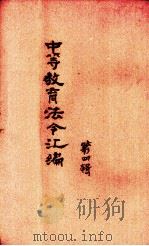 中等教育法令汇编
第四辑